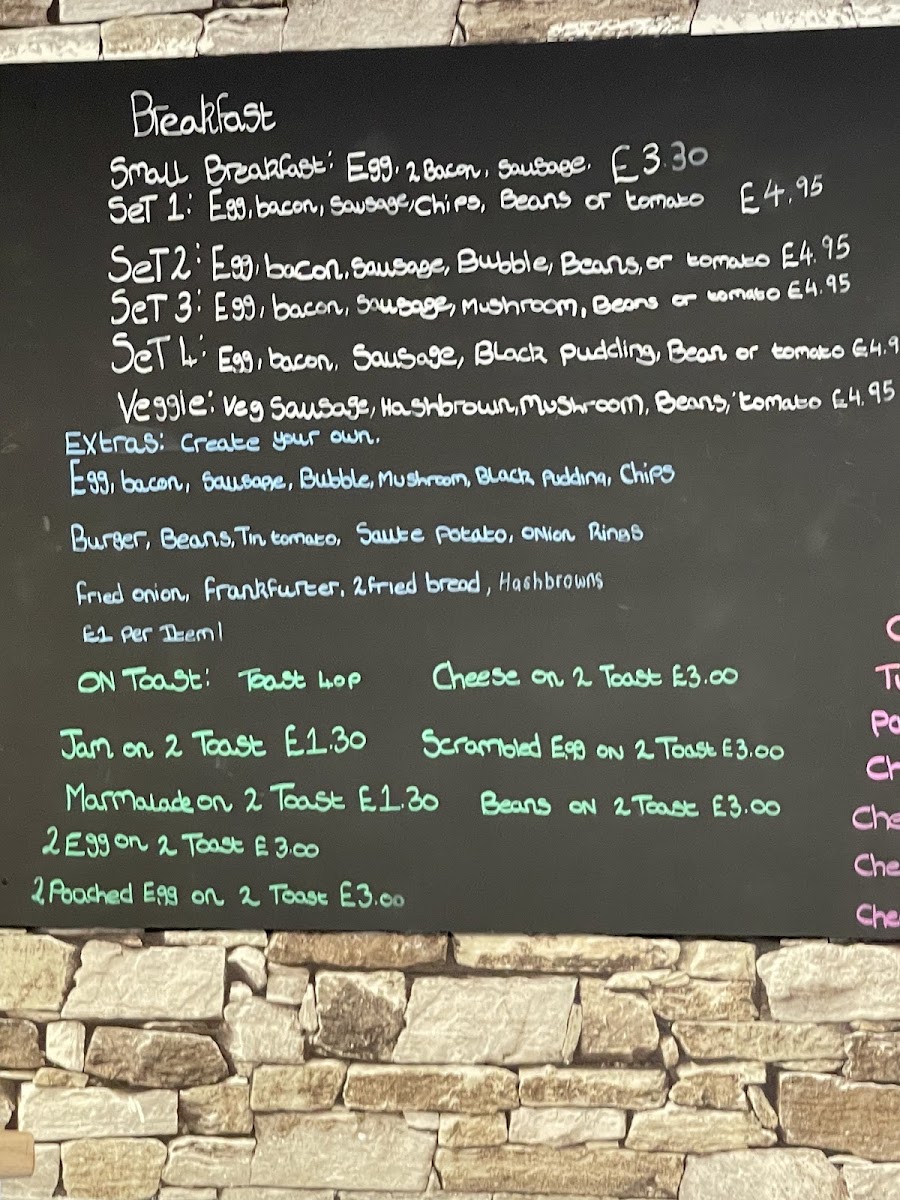 Breakfast
Small Breakfast: Egg, 2 Bacon, Sausage. £3.30
SeT 1: Egg, bacon, Sausage, Chips, Beans or tomato £4.95
SeT 2: Egg, bacon, Sausage, Bubble, Beans, or tomato £4.95
SeT 3: Egg, bacon, Sausage, Mushroom, Beans or tomato £4.95
SeT 4: Egg, bacon, Sausage, Black Pudding, Bean or tomato £4.9
Veggie: Veg Sausage, Hashbrown, Mushroom, Beans, tomato £4.95
Extras: Create your own.
Egg, bacon, Sausage, Bubble, Mushroom, Black Pudding, Chips
Burger, Beans, Tin tomato, Saute Potato, Onion Rings
Fried onion, Frankfurter, 2 fried bread, Hashbrowns
£1 Per Item!
ON Toast: Toast 40p Cheese on 2 Toast £3.00
Jam on 2 Toast £1.30 Scrambled Egg on 2 Toast £3.00
Marmalade on 2 Toast £1.30 Beans on 2 Toast £3.00
2 Egg on 2 Toast £3.00
2 Poached Egg on 2 Toast £3.00
Tu
Po
Ch
Che
Che
Che